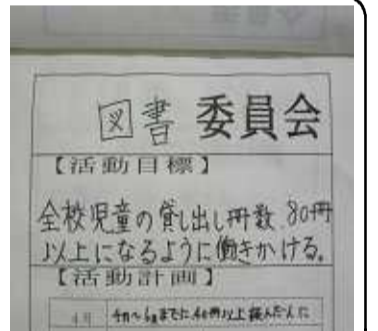 図書 委員会
【活動目標】
全校児童の貸し出し冊数 80冊
以上になるように働きかける。
【活動計画】
4月 4月〜6月までに40冊以上読んだ人に